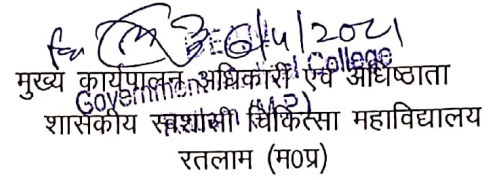 for 6/4/2021
DEAN
Government Medical College
मुख्य कार्यपालन अधिकारी एवं अधिष्ठाता
शासकीय स्वशासी चिकित्सा महाविद्यालय
रतलाम (म0प्र)